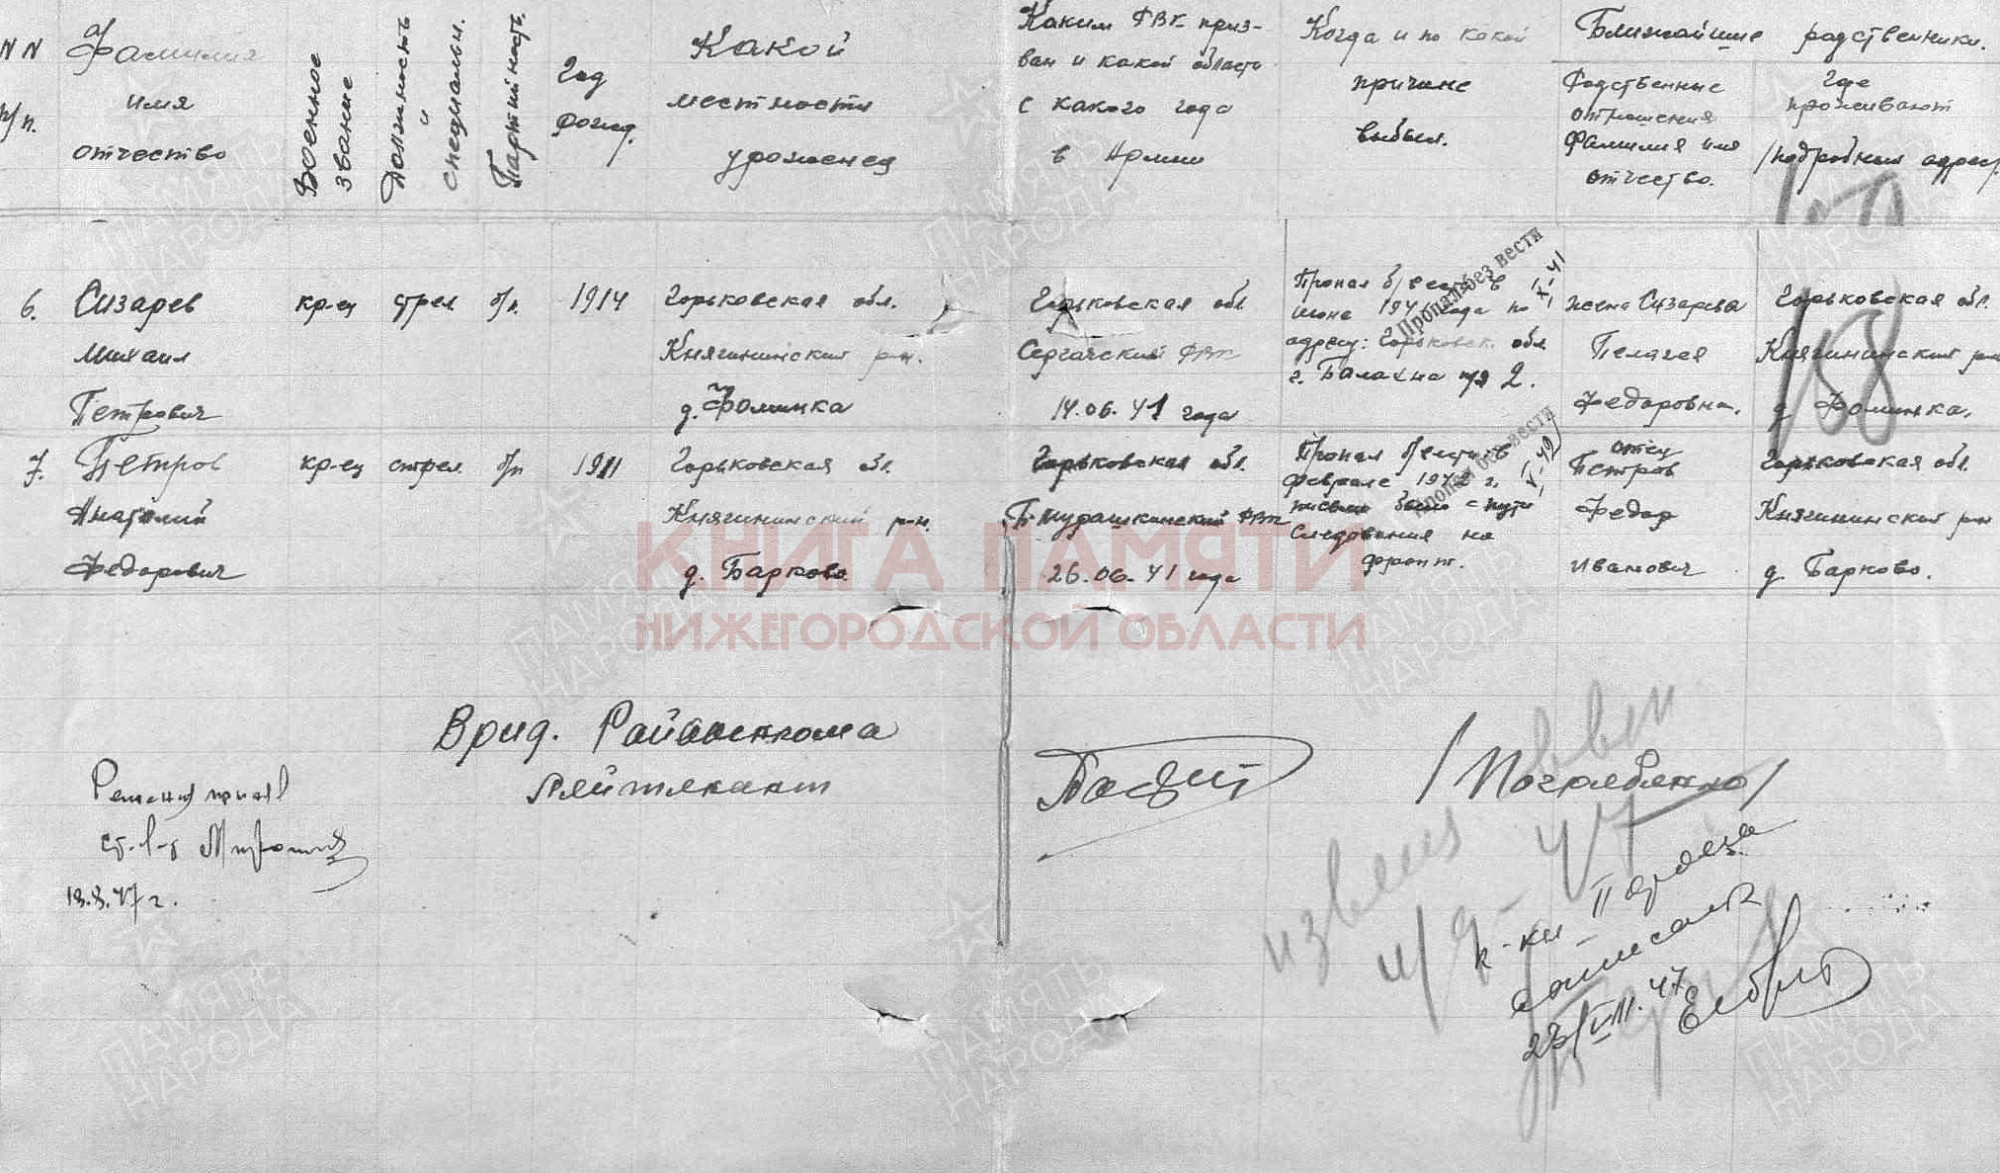 NN
п/п.
Фамилия
имя
отчество
Военное
звание
Должность
и
специальн.
Партийность
Год
рожд.
Какой
местности
уроженец
Каким РВК приз-
ван и какой области
с какого года
в Армии
Когда и по какой
причине
выбыл.
Ближайшие родственники.
Родственные
отношения
Фамилия имя
отчество.
Где
проживают
/подробный адрес/
6.
Сизарев
Михаил
Петрович
кр-ец
стрел
б/п.
1914
Горьковская обл.
Княгининский р-н.
д. Фоминка
Горьковская обл
Сергачский РВК
14.06.41 года
Пропал б/вести в
июне 1941 года по
адресу: Горьковск. обл
г. Балахна п/я 2.
Пропал без вести
жена Сизарева
Пелагея
Федоровна.
Горьковская обл.
Княгининский р-н
д Фоминка.
158
7.
Петров
Анатолий
Федорович
кр-ец
стрел.
б/п
1911
Горьковская обл.
Княгининский р-н.
д. Барково
Горьковская обл.
Б-Мурашкинский РВК
26.06.41 года
Пропал б/вести в
феврале 1942 г.
письмо было с пути
следования на
фронт.
Пропал без вести
отец
Петров
Федор
Иванович
Горьковская обл.
Княгининский р-н
д. Барково.
КНИГА ПАМЯТИ
НИЖЕГОРОДСКОЙ ОБЛАСТИ
Врид. Райвоенкома
Лейтенант
/Погребенко/
18.8.47 г.
извещ
и/9-47
23/VIII.47
ПАМЯТЬ
НАРОДА